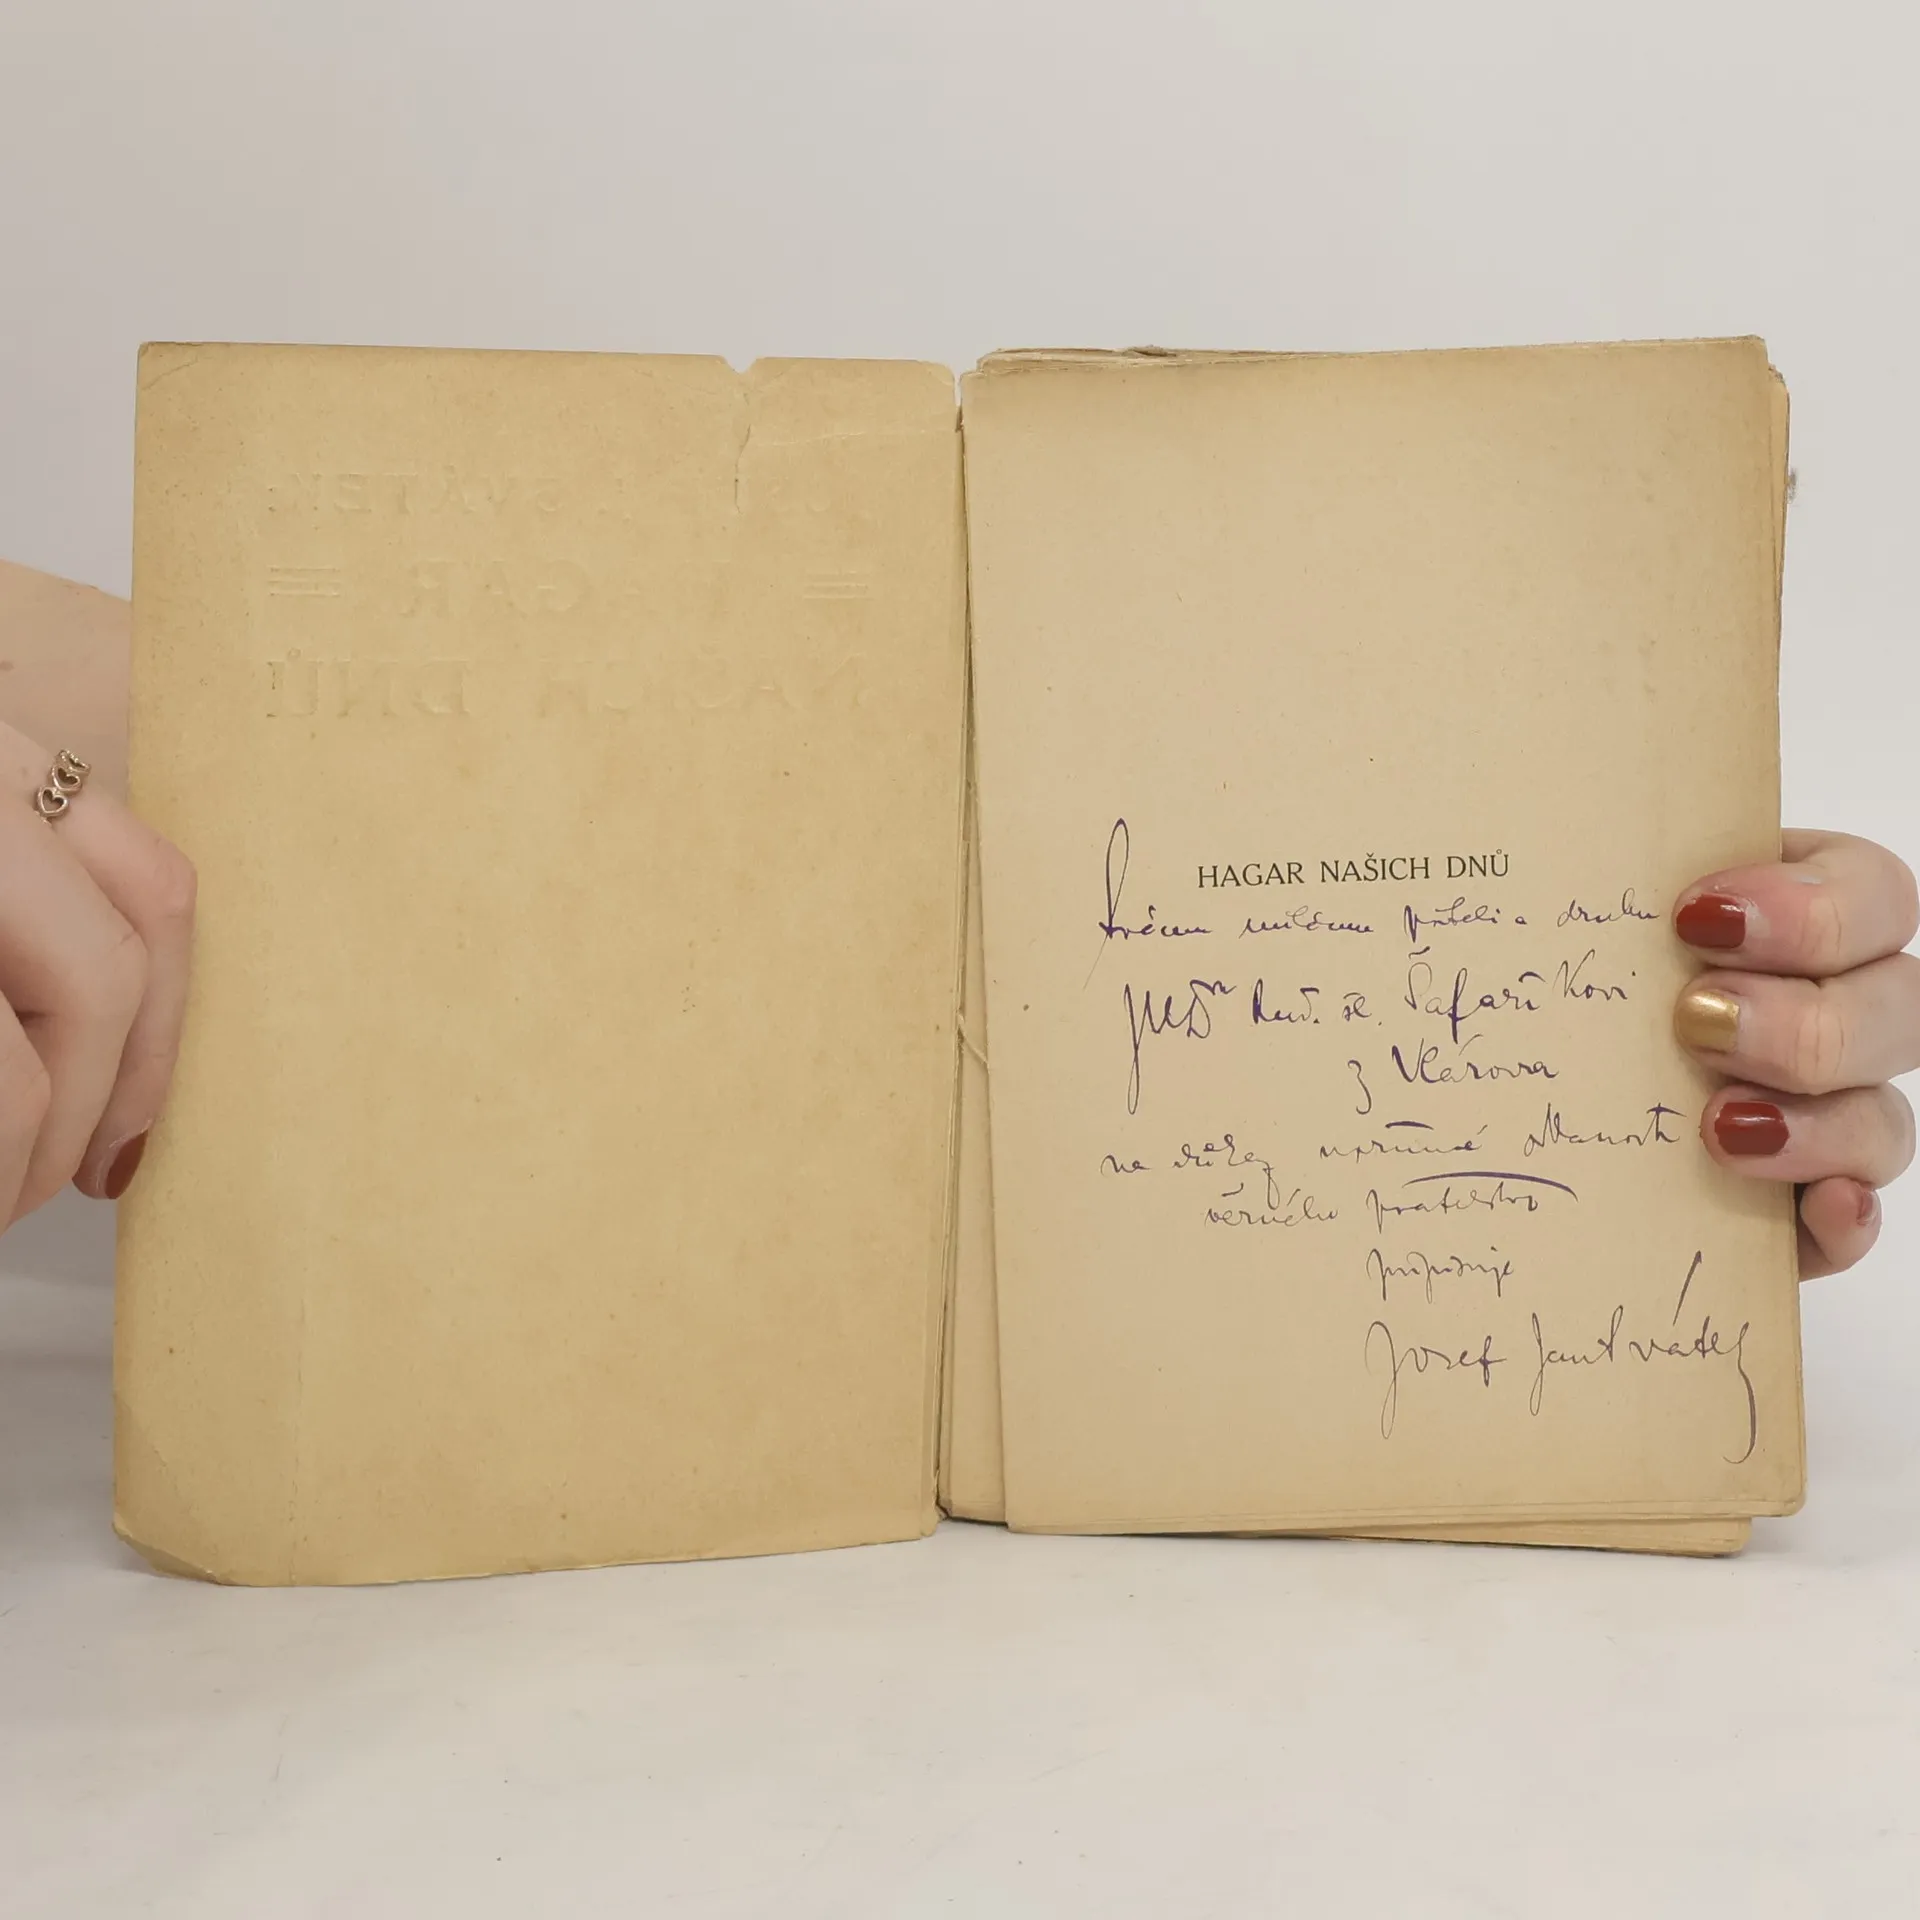 JOSEF J. SVÁTEK:
HAGAR
NAŠICH DNŮ
HAGAR NAŠICH DNŮ
Svému milému příteli a druhu
MUDru Rud. st. Šafaříkovi
z Vlárovra
na důkaz upřímné oddanosti
věrného přátelství
připisuje
Josef Jan Svátek